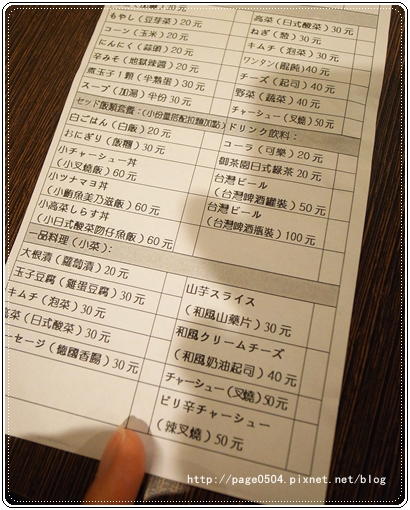 もやし（豆芽菜）20元
コーン（玉米）20元
にんにく（蒜頭）20元
辛みそ（地獄辣醬）20元
煮玉子１顆（半熟蛋）30元
スープ（加湯）半份30元
セット飯類套餐：（小份量搭配拉麵加點）
白ごはん（白飯）20元
おにぎり（飯糰）30元
小チャーシュー丼
（小叉燒飯）60元
小ツナマヨ丼
（小鮪魚美乃滋飯）60元
小高菜しらす丼
（小日式酸菜吻仔魚飯）60元
高菜（日式酸菜）30元
ねぎ（葱）30元
キムチ（泡菜）30元
ワンタン（餛飩）40元
チーズ（起司）40元
野菜（蔬菜）40元
チャーシュー（叉燒）50元
ドリンク飲料：
コーラ（可樂）20元
御茶園日式綠茶20元
台灣ビール
（台灣啤酒罐裝）50元
台灣ビール
（台灣啤酒瓶裝）100元
一品料理（小菜）：
大根漬（蘿蔔漬）20元
玉子豆腐（雞蛋豆腐）30元
キムチ（泡菜）30元
高菜（日式酸菜）30元
ーセージ（德國香腸）30元
山芋スライス
（和風山藥片）30元
和風クリームチーズ
（和風奶油起司）40元
チャーシュー（叉燒）50元
ピリ辛チャーシュー
（辣叉燒）50元
http://page0504.pixnet.net/blog